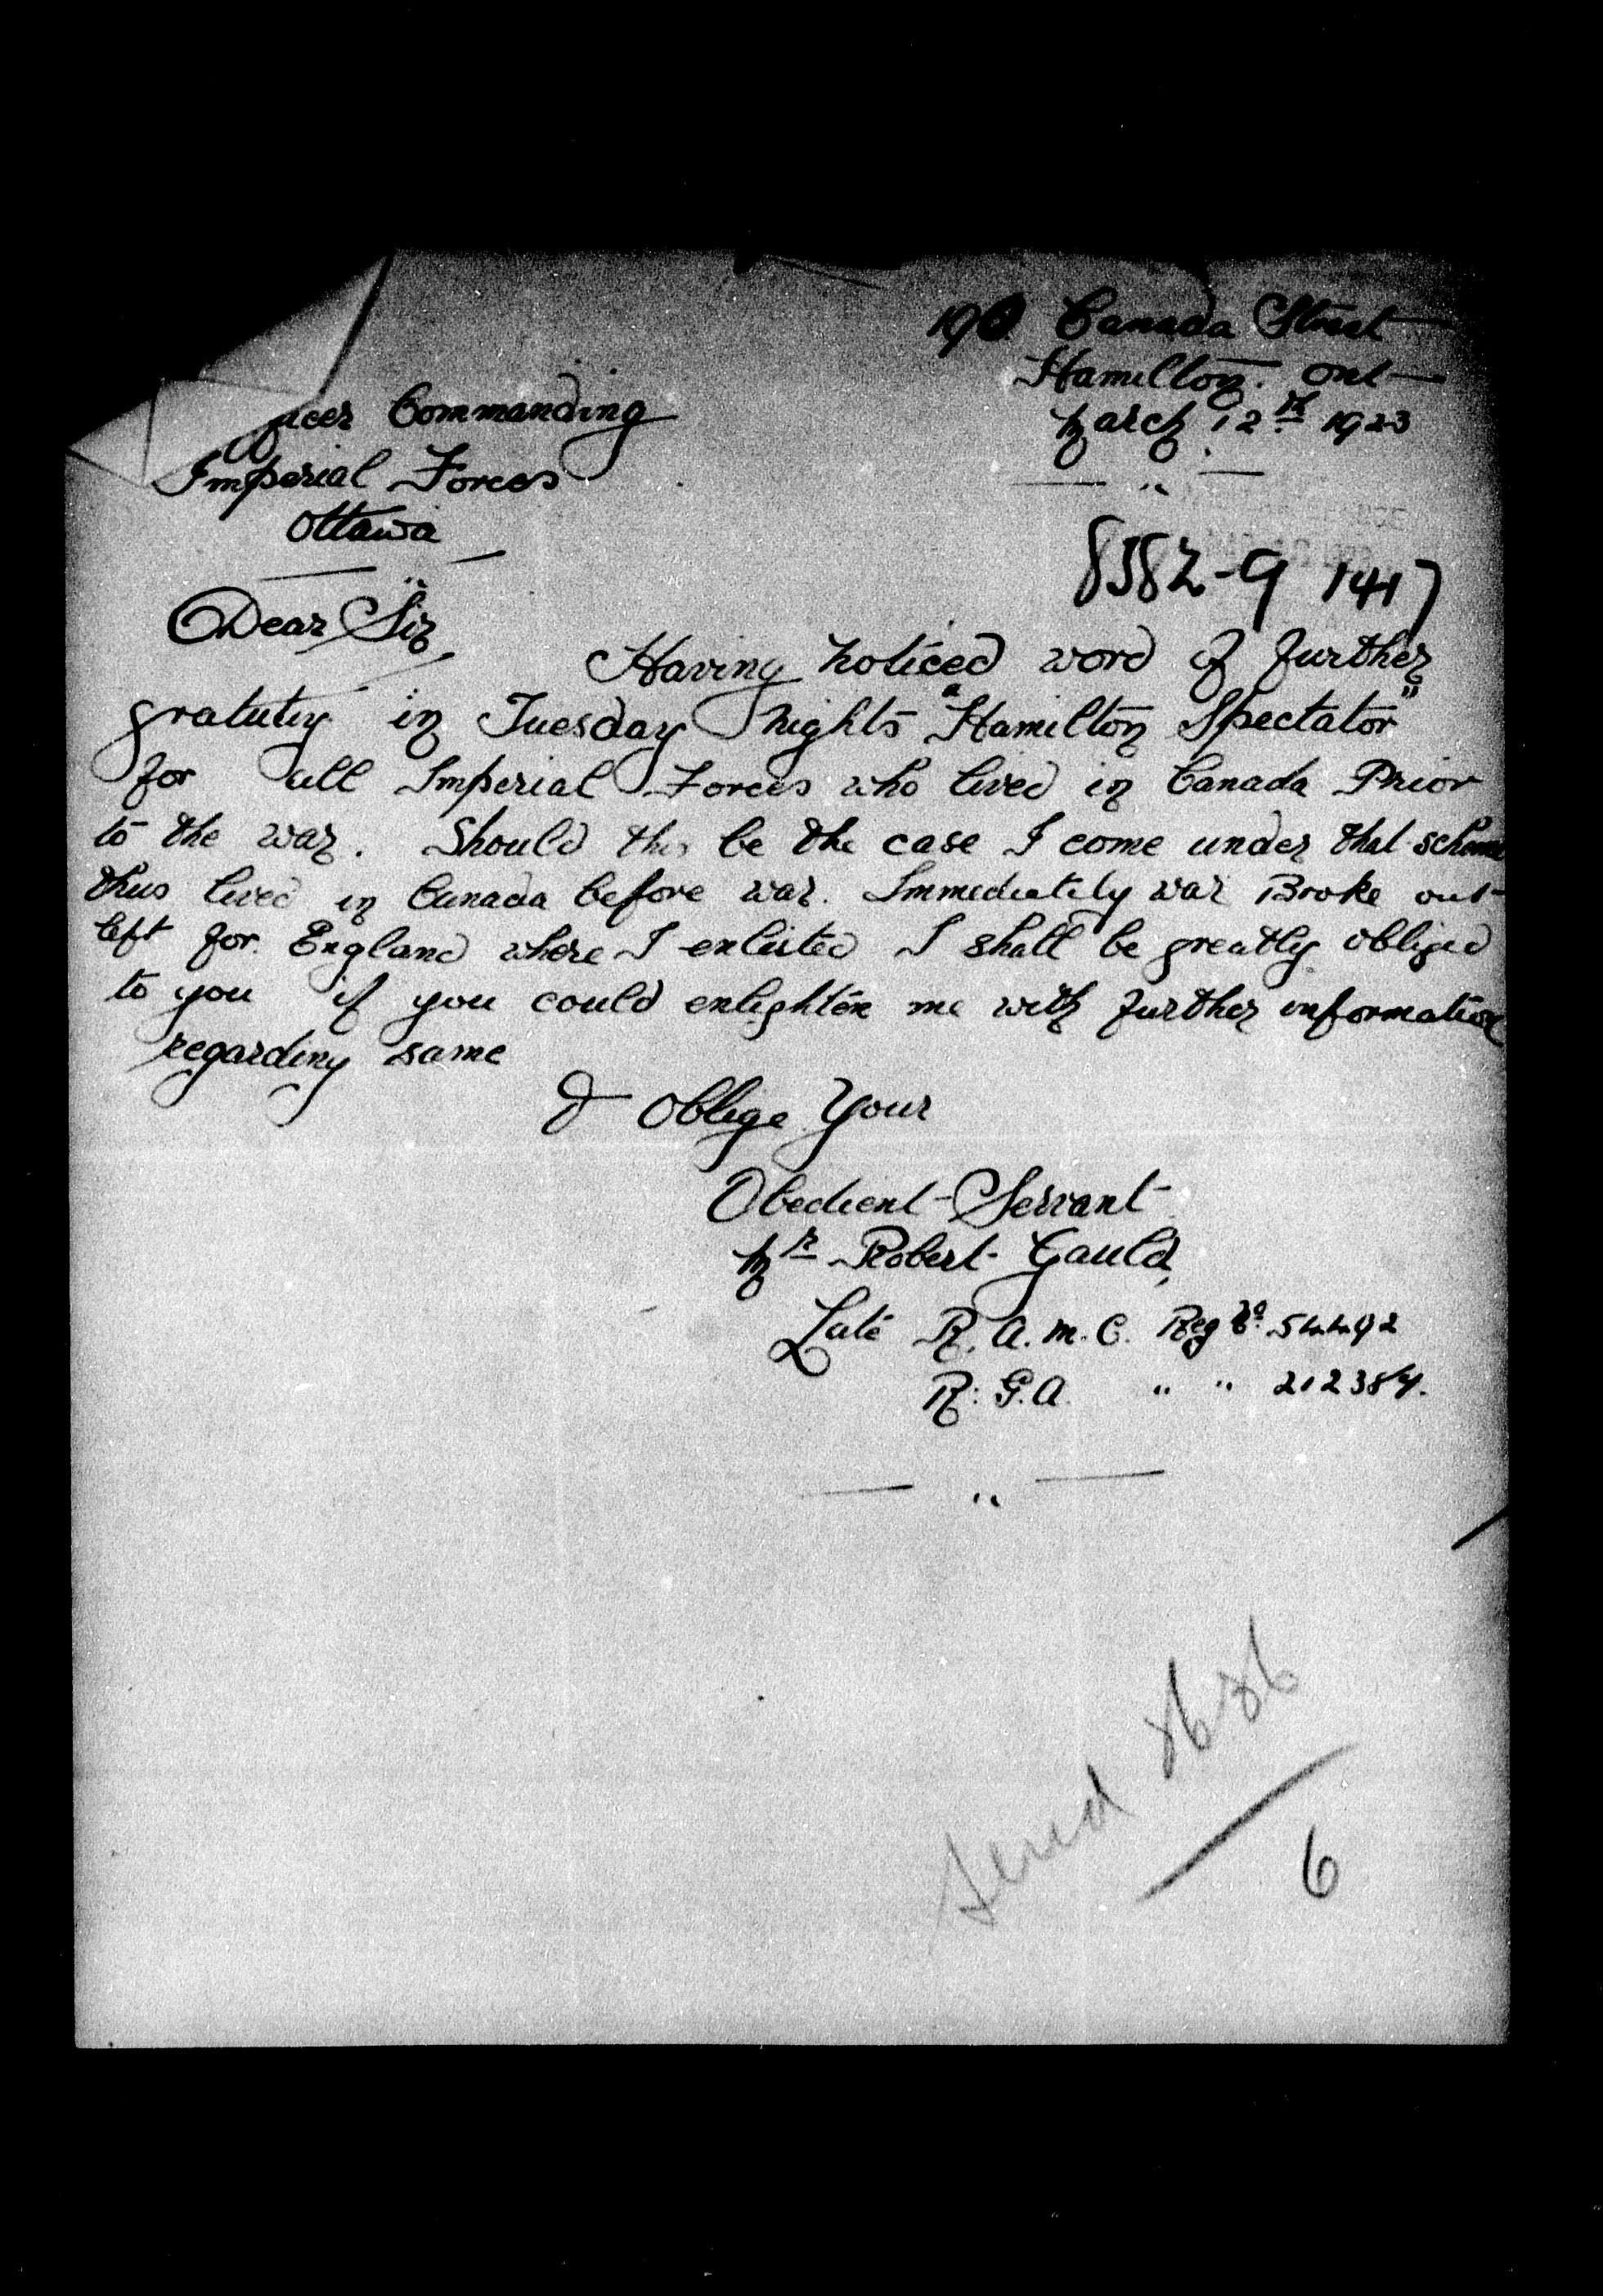 190 Canada Street
Hamilton. Ont
March 12th 1923
icer Commanding
Imperial Forces
Ottawa
8582-9 1417
Dear Sir
Having noticed word of further
gratutiy in Tuesday nights "Hamilton Spectator"
for all Imperial Forces who lived in Canada Prior
to the war. Should this be the case I come under that scheme
thus lived in Canada before war. Immediately war Broke out
left for England where I enlisted I shall be greatly obliged
to you if you could enlighten me with further information
regarding same
& Oblige Your
Obedient Servant
Mr Robert Gauld,
Late R.A.M.C. Reg No. 54492
R.G.A. " " 212384.
Send 8636
6